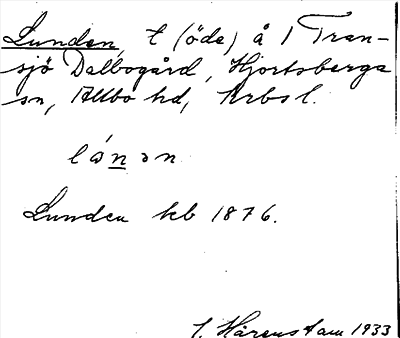 Lunden, t (öde) å 1 Tran-
sjö Dalbogård, Hjortsberga
sn, Allbo hd, Krbs l.
Lunden kb 1876.
I. Hårenstam 1933